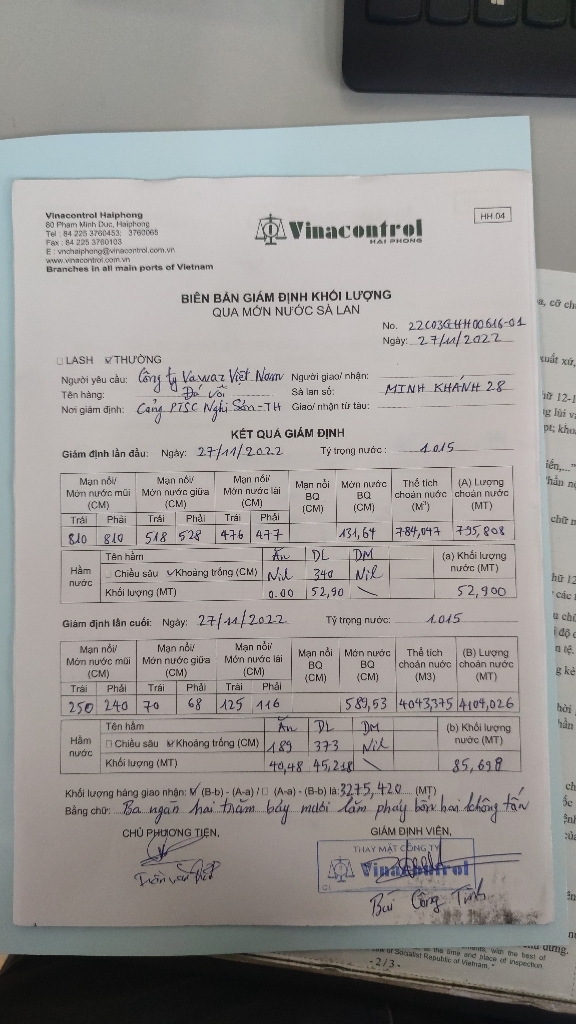 Vinacontrol Haiphong
80 Pham Minh Duc, Haiphong
Tel : 84 225 3760453; 3760065
Fax : 84 225 3760103
E : vnchaiphong@vinacontrol.com.vn
www.vinacontrol.com.vn
Branches in all main ports of Vietnam
Vinacontrol
HAI PHONG
HH.04
BIÊN BẢN GIÁM ĐỊNH KHỐI LƯỢNG
QUA MỚN NƯỚC SÀ LAN
No. 22C03GHH00616-01
Ngày: 27/11/2022
LASH THƯỜNG
Người yêu cầu: Công ty Vawaz Việt Nam Người giao/ nhận:
Tên hàng: Đá vôi Sà lan số: MINH KHÁNH 28
Nơi giám định: Cảng PTSC Nghi Sơn-TH Giao/ nhận từ tàu:
KẾT QUẢ GIÁM ĐỊNH
Giám định lần đầu: Ngày: 27/11/2022 Tỷ trọng nước : 1.015
Mạn nổi/ Mớn nước mũi (CM) Mạn nổi/ Mớn nước giữa (CM) Mạn nổi/ Mớn nước lái (CM) Mạn nổi BQ (CM) Mớn nước BQ (CM) Thể tích choán nước (M³) (A) Lượng choán nước (MT)
Trái Phải Trái Phải Trái Phải
810 810 518 528 476 477 131,64 784,047 795,808
Hầm nước Tên hầm Ăn DL DM (a) Khối lượng nước (MT)
Chiều sâu Khoảng trống (CM) Nil 340 Nil
Khối lượng (MT) 0.00 52,90 52,900
Giám định lần cuối: Ngày: 27/11/2022 Tỷ trọng nước: 1.015
Mạn nổi/ Mớn nước mũi (CM) Mạn nổi/ Mớn nước giữa (CM) Mạn nổi/ Mớn nước lái (CM) Mạn nổi BQ (CM) Mớn nước BQ (CM) Thể tích choán nước (M3) (B) Lượng choán nước (MT)
Trái Phải Trái Phải Trái Phải
250 240 70 68 125 116 589,53 4043,375 4104,026
Hầm nước Tên hầm Ăn DL DM (b) Khối lượng nước (MT)
Chiều sâu Khoảng trống (CM) 189 373 Nil
Khối lượng (MT) 40,48 45,218 85,698
Khối lượng hàng giao nhận: (B-b) - (A-a) / (A-a) - (B-b) là: 3275,420 (MT)
Bằng chữ: Ba ngàn hai trăm bảy mươi lăm phảy bốn hai không tấn
CHỦ PHƯƠNG TIỆN, GIÁM ĐỊNH VIÊN,
THAY MẶT CÔNG TY
Vinacontrol
Trần Văn
Bùi Công Tỉnh
of Socialist Republic of Vietnam."
-2/3-